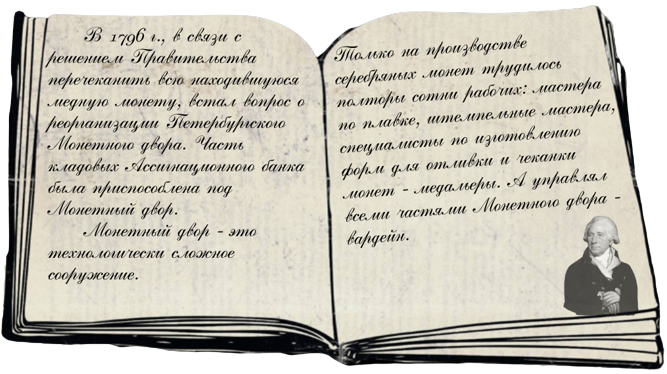 В 1796 г., в связи с
решением Правительства
перечеканить всю находившуюся
медную монету, встал вопрос о
реорганизации Петербургского
Монетного двора. Часть
кладовых Ассигнационного банка
была приспособлена под
Монетный двор.
Монетный двор - это
технологически сложное
сооружение.
Только на производстве
серебряных монет трудилось
полторы сотни рабочих: мастера
по плавке, штемпельные мастера,
специалисты по изготовлению
форм для отливки и чеканки
монет - медальеры. А управлял
всеми частями Монетного двора -
вардейн.